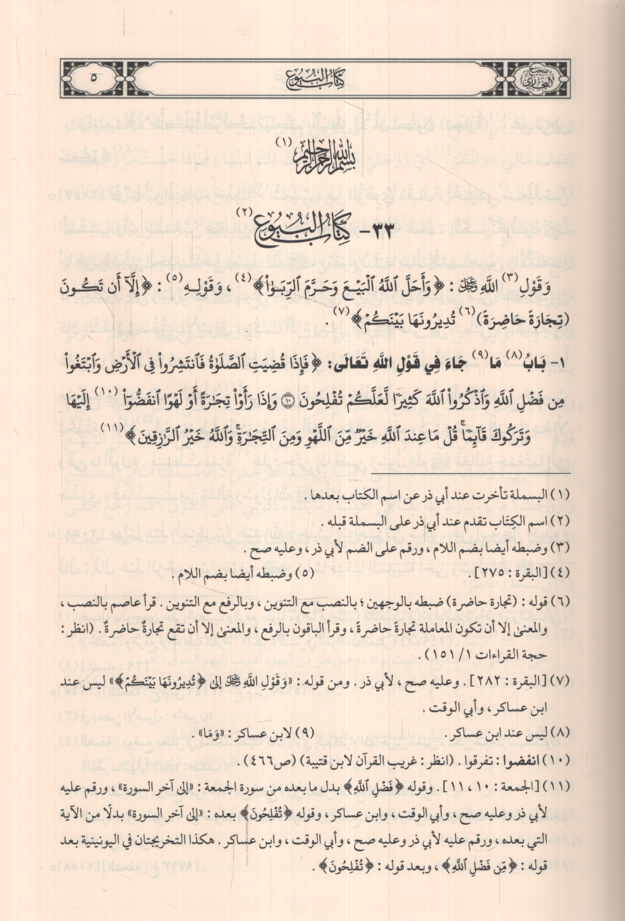 صحيح البخاري كتاب البيوع ٥
بسم الله الرحمن الرحيم (١)
٣٣- كتاب البيوع (٢)
وَقَوْلِ (٣) اللَّهِ ﷻ : ﴿وَأَحَلَّ ٱللَّهُ ٱلْبَيْعَ وَحَرَّمَ ٱلرِّبَوٰا۟﴾ (٤) ، وَقَوْلِهِ (٥) : ﴿إِلَّآ أَن تَكُونَ
(تِجَارَةً حَاضِرَةً) (٦) تُدِيرُونَهَا بَيْنَكُمْ﴾ (٧) .
١- بَابُ (٨) مَا (٩) جَاءَ فِي قَوْلِ اللَّهِ تَعَالَى: ﴿فَإِذَا قُضِيَتِ ٱلصَّلَوٰةُ فَٱنتَشِرُوا۟ فِى ٱلْأَرْضِ وَٱبْتَغُوا۟
مِن فَضْلِ ٱللَّهِ وَٱذْكُرُوا۟ ٱللَّهَ كَثِيرًا لَّعَلَّكُمْ تُفْلِحُونَ ۝١٠ وَإِذَا رَأَوْا۟ تِجَٰرَةً أَوْ لَهْوًا ٱنفَضُّوٓا۟ (١٠) إِلَيْهَا
وَتَرَكُوكَ قَآئِمًا ۚ قُلْ مَا عِندَ ٱللَّهِ خَيْرٌ مِّنَ ٱللَّهْوِ وَمِنَ ٱلتِّجَٰرَةِ ۚ وَٱللَّهُ خَيْرُ ٱلرَّٰزِقِينَ﴾ (١١)
(١) البسملة تأخرت عند أبي ذر عن اسم الكتاب بعدها .
(٢) اسم الكِتَاب تقدم عند أبي ذر على البسملة قبله .
(٣) وضبطه أيضا بضم اللام ، ورقم على الضم لأبي ذر ، وعليه صح .
(٤) [البقرة : ٢٧٥] . (٥) وضبطه أيضا بضم اللام .
(٦) قوله : (تجارة حاضرة) ضبطه بالوجهين ؛ بالنصب مع التنوين ، وبالرفع مع التنوين . قرأ عاصم بالنصب ،
والمعنى إلا أن تكون المعاملة تجارةً حاضرةً ، وقرأ الباقون بالرفع ، والمعنى إلا أن تقع تجارةٌ حاضرةٌ . (انظر :
حجة القراءات ١/ ١٥١) .
(٧) [البقرة : ٢٨٢] . وعليه صح ، لأبي ذر . ومن قوله : «وَقَوْلِ اللَّهِ ﷻ إلى ﴿تُدِيرُونَهَا بَيْنَكُمْ﴾» ليس عند
ابن عساكر ، وأبي الوقت .
(٨) ليس عند ابن عساكر . (٩) لابن عساكر : «وَمَا» .
(١٠) انفضوا : تفرقوا . (انظر : غريب القرآن لابن قتيبة) (ص٤٦٦) .
(١١) [الجمعة : ١٠ ، ١١] . وقوله ﴿فَضْلِ ٱللَّهِ﴾ بدل ما بعده من سورة الجمعة : «إلى آخر السورة» ، ورقم عليه
لأبي ذر وعليه صح ، وأبي الوقت ، وابن عساكر ، وقوله ﴿تُفْلِحُونَ﴾ بعده : «إلى آخر السورة» بدلًا من الآية
التي بعده ، ورقم عليه لأبي ذر وعليه صح ، وأبي الوقت ، وابن عساكر . هكذا التخريجتان في اليونينية بعد
قوله : ﴿مِّن فَضْلِ ٱللَّهِ﴾ ، وبعد قوله : ﴿تُفْلِحُونَ﴾ .